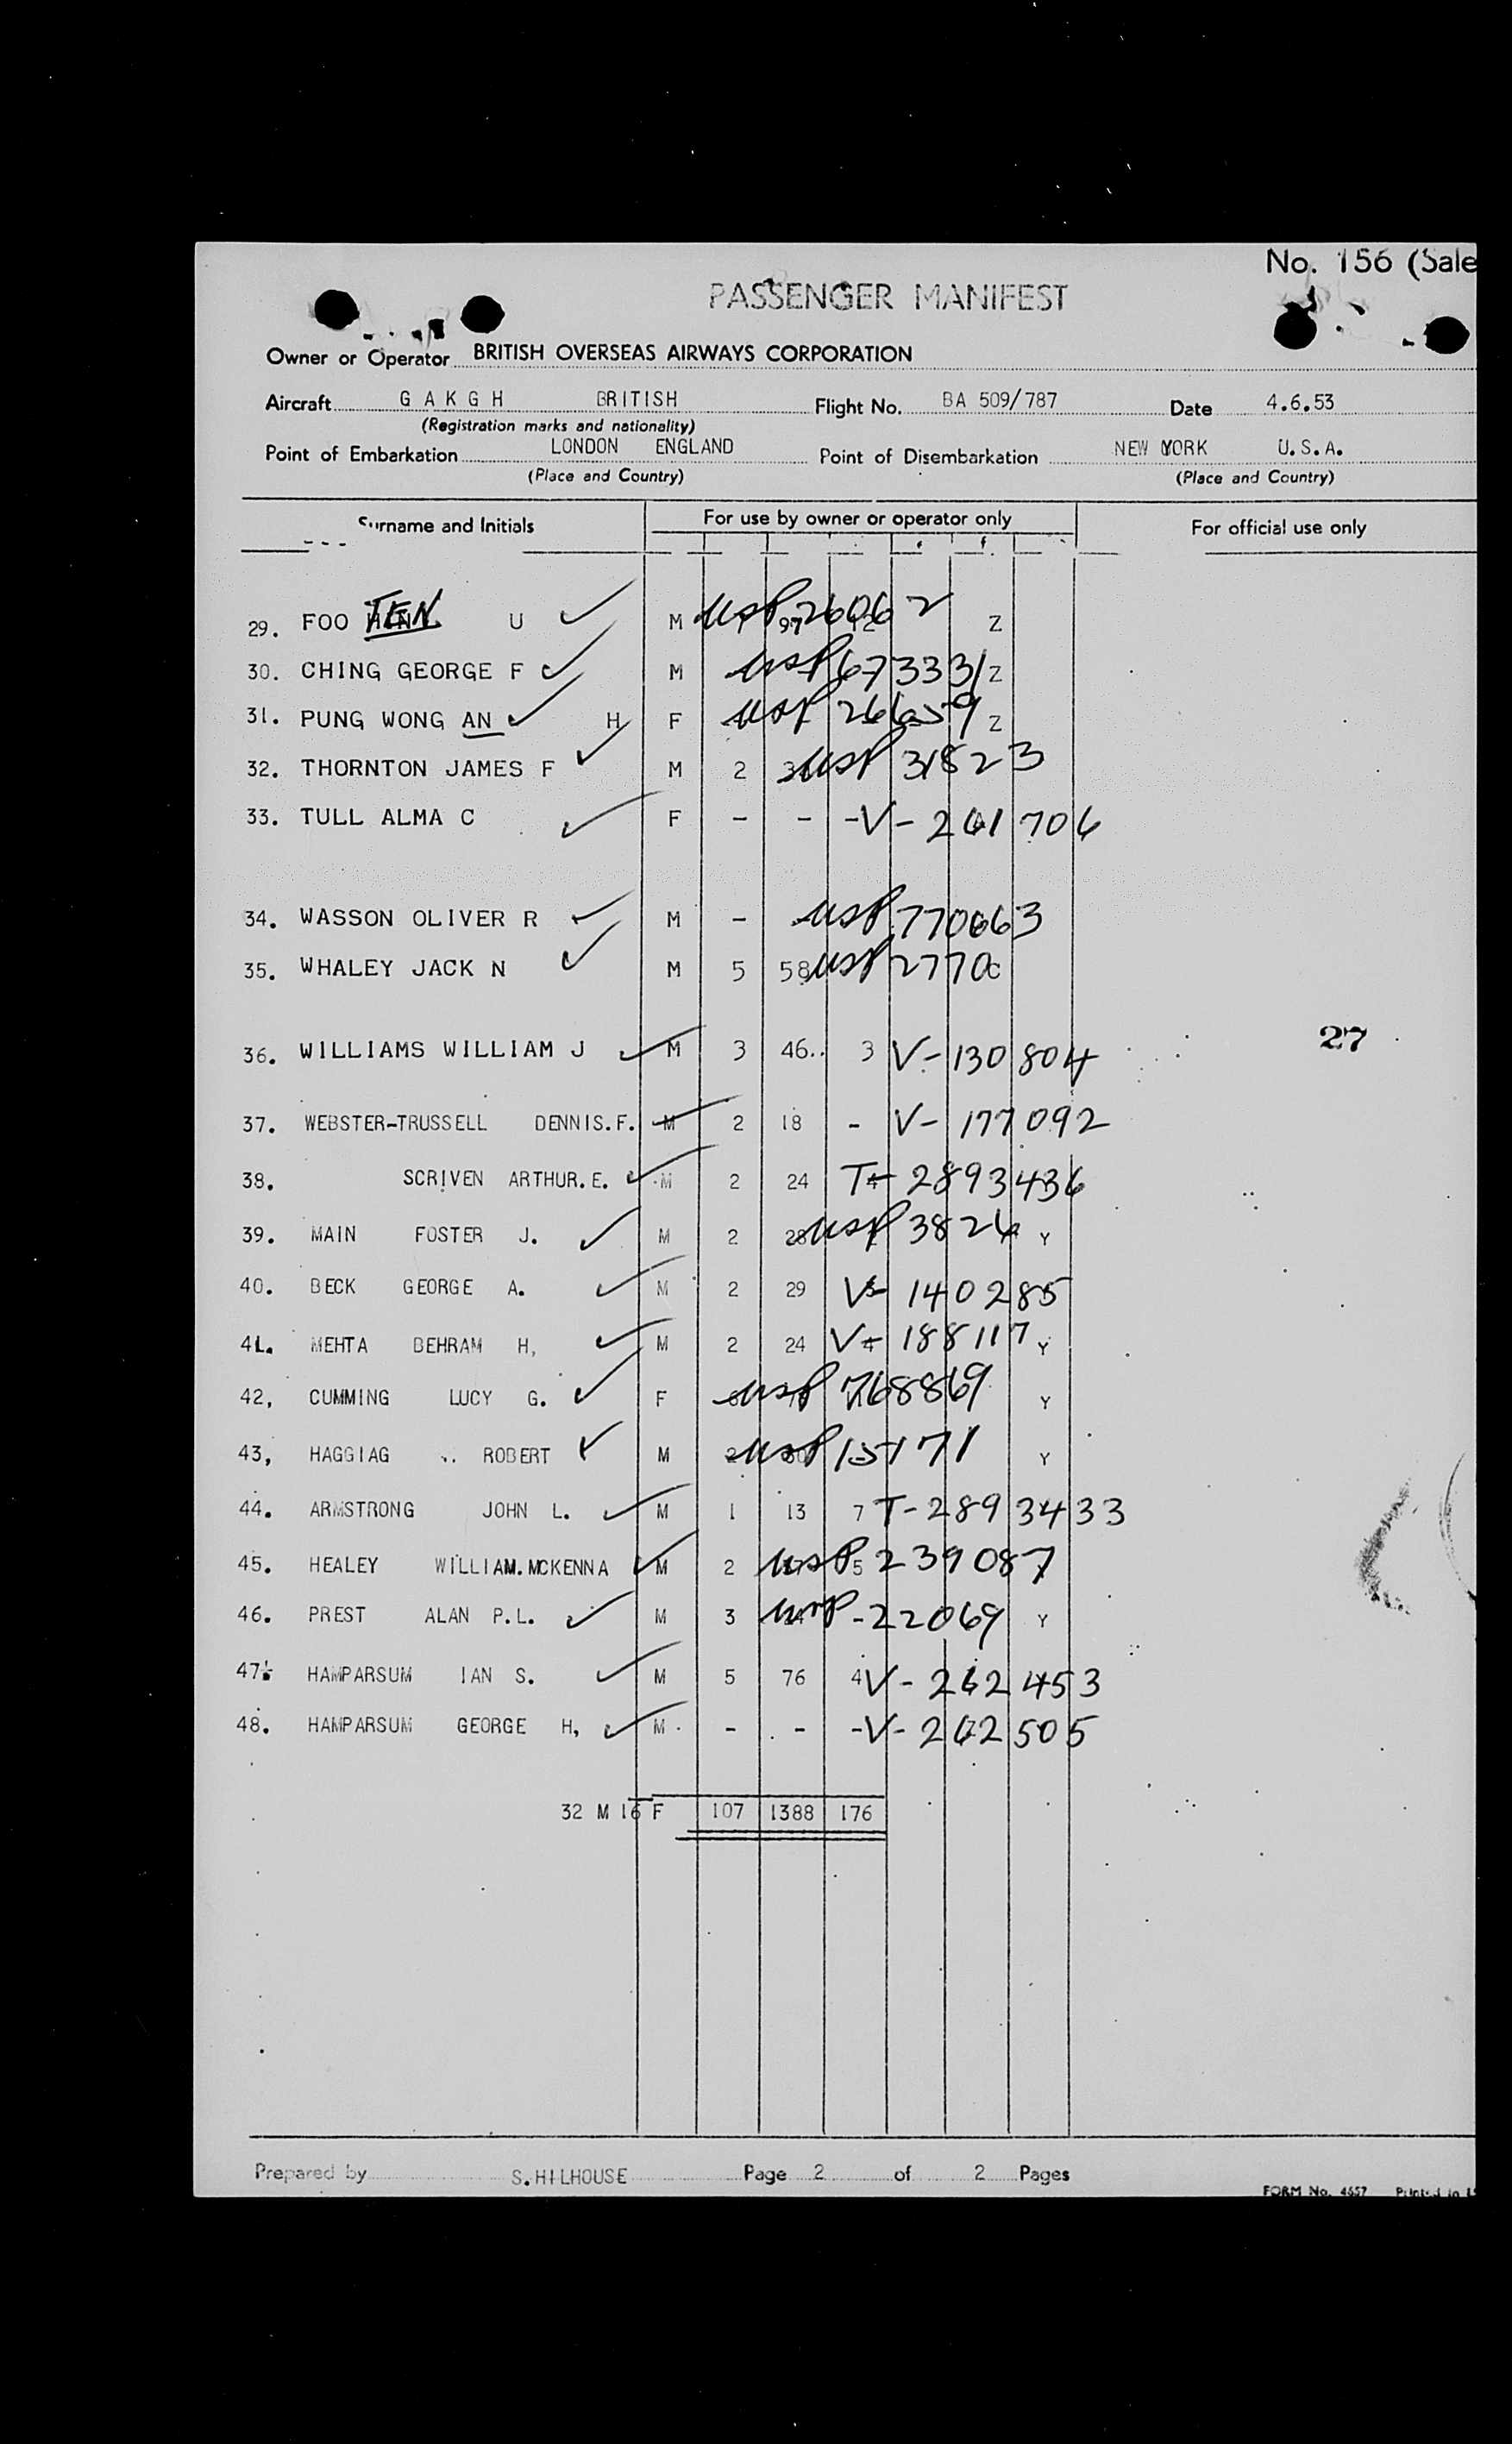 No. 156 (Sale
PASSENGER MANIFEST
Owner or Operator BRITISH OVERSEAS AIRWAYS CORPORATION
Aircraft G A K G H BRITISH Flight No. BA 509/787 Date 4.6.53
(Registration marks and nationality)
Point of Embarkation LONDON ENGLAND Point of Disembarkation NEW YORK U.S.A.
(Place and Country) (Place and Country)
Surname and Initials For use by owner or operator only For official use only
29. FOO TEN U M USP 26062 97 Z
30. CHING GEORGE F M USP 673331 Z
31. PUNG WONG AN H F USP 26659 Z
32. THORNTON JAMES F M 2 USP 31823
33. TULL ALMA C F - - - V- 261706
34. WASSON OLIVER R M - USP 770663
35. WHALEY JACK N M 5 58 USP 2770
36. WILLIAMS WILLIAM J M 3 46.. 3 V-130804
27
37. WEBSTER-TRUSSELL DENNIS.F. M 2 18 - V- 177092
38. SCRIVEN ARTHUR.E. M 2 24 T- 2893436
39. MAIN FOSTER J. M 2 28 USP 3826 Y
40. BECK GEORGE A. M 2 29 V- 140285
41. MEHTA BEHRAM H, M 2 24 V- 188117 Y
42, CUMMING LUCY G. F USP 768869 Y
43, HAGGIAG .. ROBERT M 2 USP 15171 Y
44. ARMSTRONG JOHN L. M 1 13 7 T-2893433
45. HEALEY WILLIAM.MCKENNA M 2 USP 5 239087
46. PREST ALAN P.L. M 3 USP -22069 Y
47. HAMPARSUM IAN S. M 5 76 4 V- 262453
48. HAMPARSUM GEORGE H, M - - - V- 262505
32 M 16 F 107 1388 176
Prepared by S.HILHOUSE Page 2 of 2 Pages
FORM No. 4657 Printed in